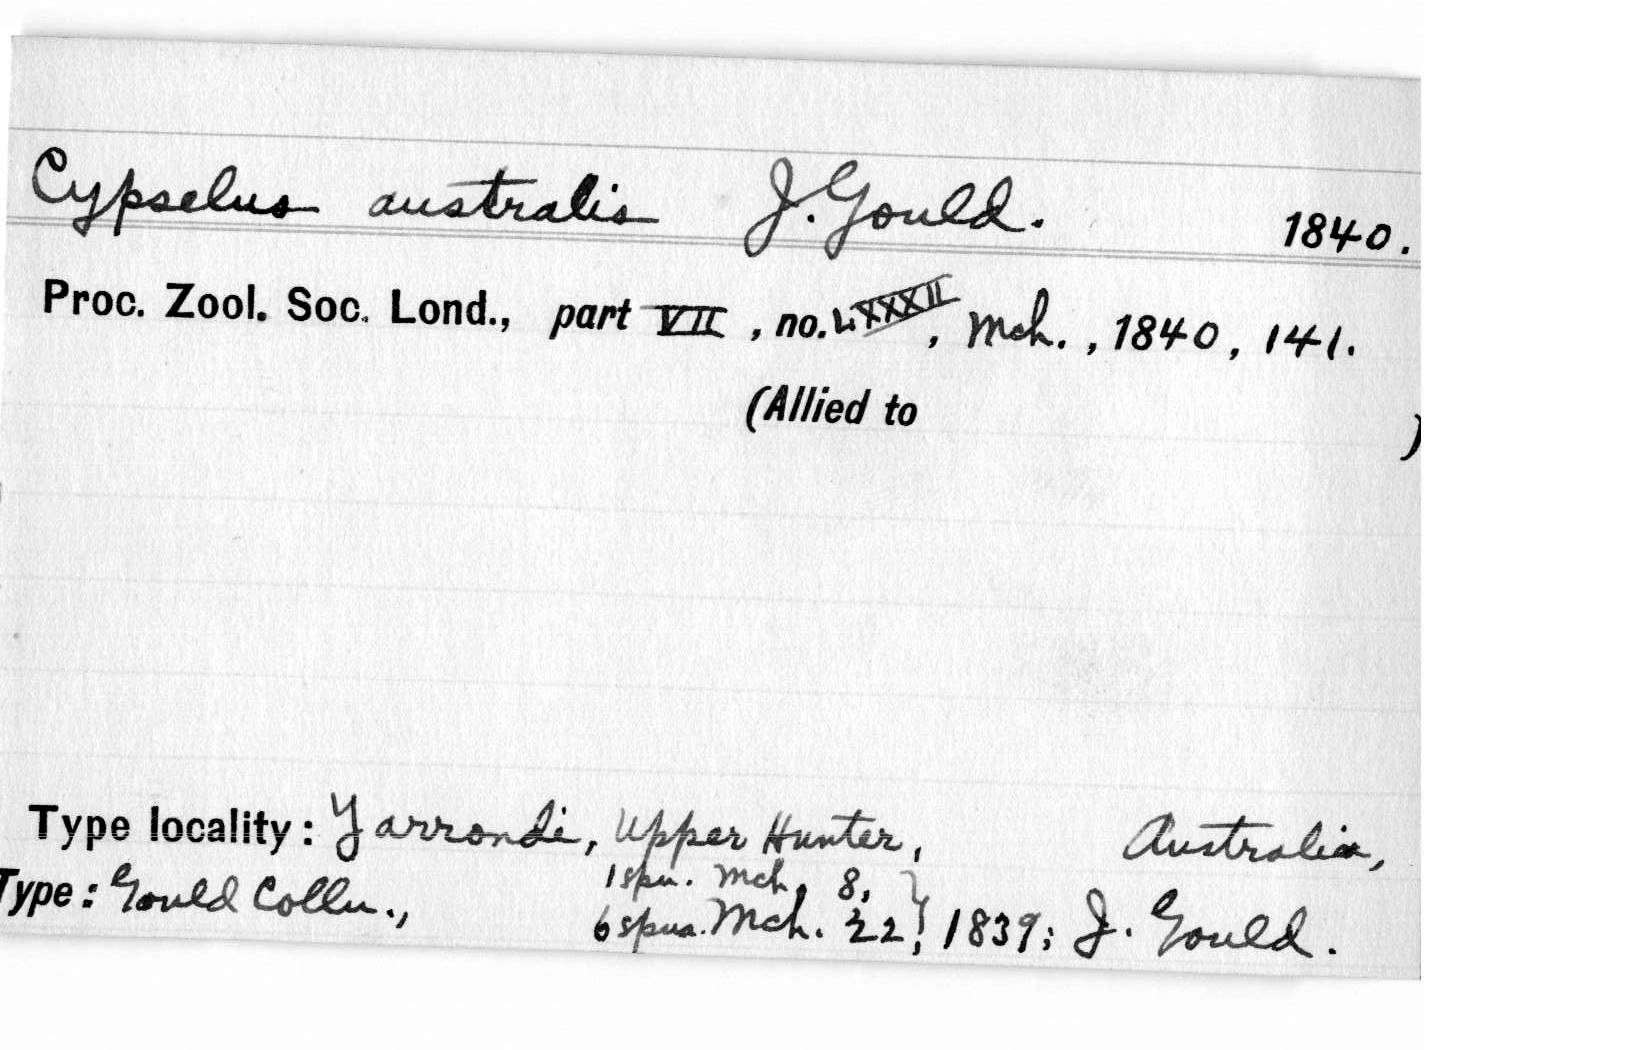 Cypselus australis J. Gould. 1840.
Proc. Zool. Soc. Lond., part VII, no. LXXXII, Mch., 1840, 141.
(Allied to )
Type locality: Yarrondi, Upper Hunter, Australia,
1 spn. Mch. 8,
Type: Gould Colln., 6 spns. Mch. 22, } 1839; J. Gould.